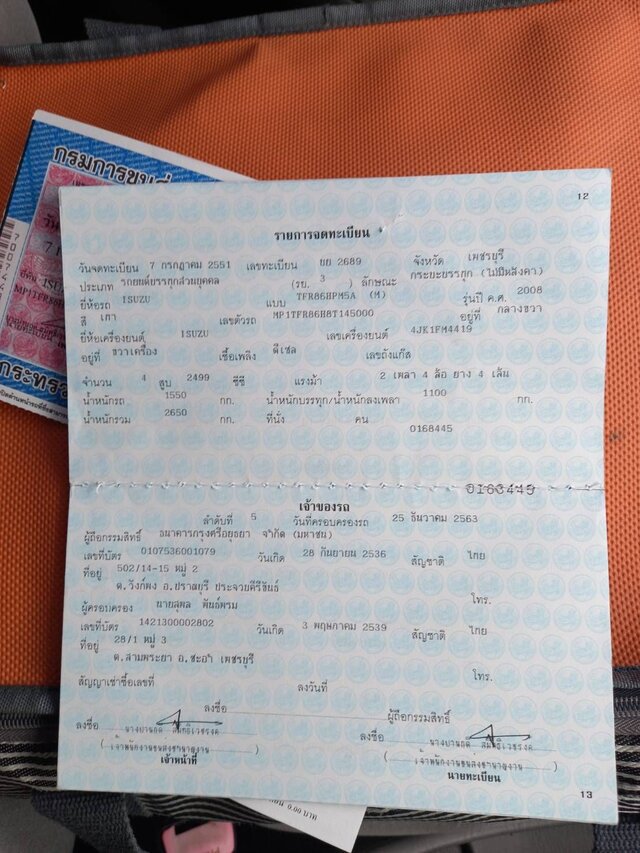 กรมการขนส่ง
12
รายการจดทะเบียน
วันจดทะเบียน 7 กรกฎาคม 2551 เลขทะเบียน ยย 2689 จังหวัด เพชรบุรี
ประเภท รถยนต์บรรทุกส่วนบุคคล (รย. 3 ) ลักษณะ กระบะบรรทุก (ไม่มีหลังคา)
ยี่ห้อรถ ISUZU แบบ TFR86HPM5A (M) รุ่นปี ค.ศ. 2008
สี เทา เลขตัวรถ MP1TFR86H8T145000 อยู่ที่ กลางขวา
ยี่ห้อเครื่องยนต์ ISUZU เลขเครื่องยนต์ 4JK1FM4419
อยู่ที่ ขวาเครื่อง เชื้อเพลิง ดีเซล เลขถังแก๊ส
จำนวน 4 สูบ 2499 ซีซี แรงม้า 2 เพลา 4 ล้อ ยาง 4 เส้น
น้ำหนักรถ 1550 กก. น้ำหนักบรรทุก/น้ำหนักลงเพลา 1100 กก.
น้ำหนักรวม 2650 กก. ที่นั่ง คน
0168445
0168445
เจ้าของรถ
ลำดับที่ 5 วันที่ครอบครองรถ 25 ธันวาคม 2563
ผู้ถือกรรมสิทธิ์ ธนาคารกรุงศรีอยุธยา จำกัด (มหาชน)
เลขที่บัตร 0107536001079 วันเกิด 28 กันยายน 2536 สัญชาติ ไทย
ที่อยู่ 502/14-15 หมู่ 2
ต.วังก์พง อ.ปราณบุรี ประจวบคีรีขันธ์ โทร.
ผู้ครอบครอง นายสุพล พันธ์พรม
เลขที่บัตร 1421300002802 วันเกิด 3 พฤษภาคม 2539 สัญชาติ ไทย
ที่อยู่ 28/1 หมู่ 3
ต.สามพระยา อ.ชะอำ เพชรบุรี โทร.
สัญญาเช่าซื้อเลขที่ ลงวันที่
ลงชื่อ ผู้ถือกรรมสิทธิ์
ลงชื่อ ลงชื่อ
(เจ้าพนักงานขนส่งชำนาญงาน) (เจ้าพนักงานขนส่งชำนาญงาน)
เจ้าหน้าที่ นายทะเบียน
13
0.00 บาท